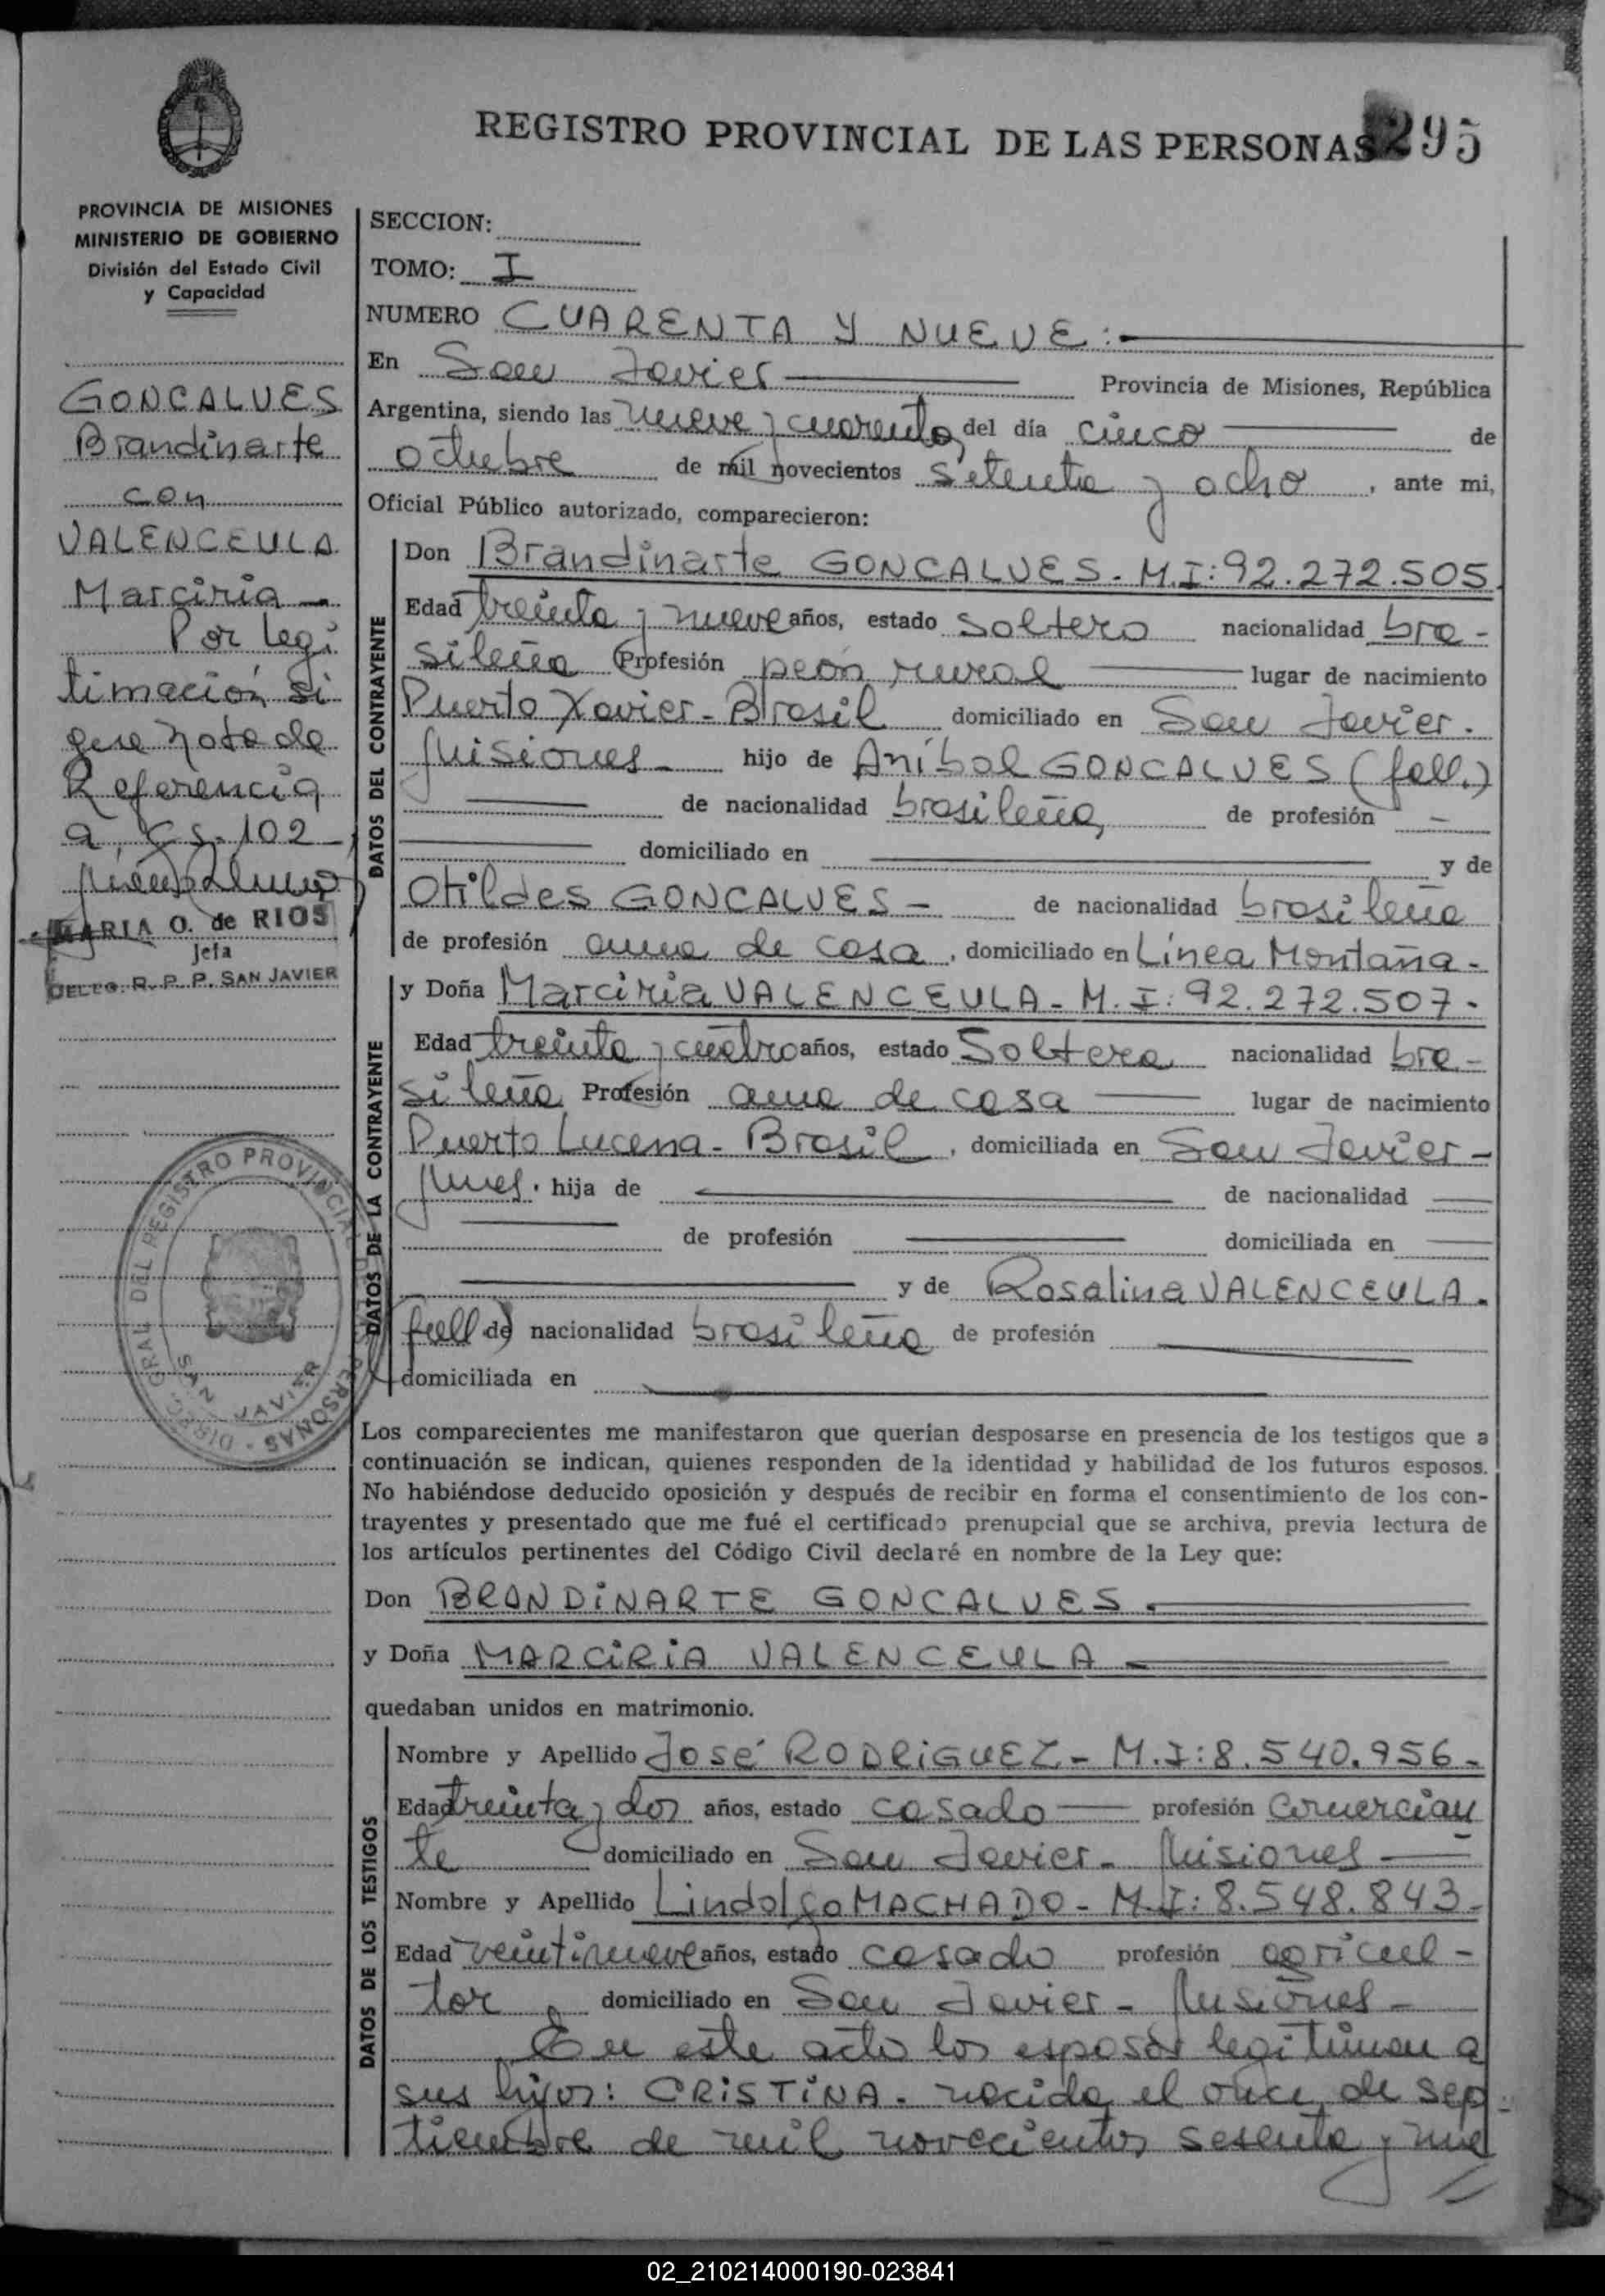 REGISTRO PROVINCIAL DE LAS PERSONAS 295
PROVINCIA DE MISIONES
MINISTERIO DE GOBIERNO
División del Estado Civil
y Capacidad
GONCALVES
Brandinarte
con
VALENCEULA
Marciria -
Por legi
timación si
gue nota de
Referencia
a fs. 102
MARIA O. de RIOS
Jefa
DELEG. R. P. P. SAN JAVIER
DIREC. GRAL DEL REGISTRO PROVINCIAL DE LAS PERSONAS
SAN JAVIER
SECCION:
TOMO: I
NUMERO CUARENTA Y NUEVE:
En San Javier Provincia de Misiones, República
Argentina, siendo las nueve y cuarenta, del día cinco de
octubre de mil novecientos setenta y ocho, ante mi,
Oficial Público autorizado, comparecieron:
DATOS DEL CONTRAYENTE
Don Brandinarte GONCALVES - M.I: 92.272.505.
Edad treinta y nueve años, estado soltero nacionalidad bra-
sileña Profesión peón rural lugar de nacimiento
Puerto Xavier - Brasil domiciliado en San Javier.
Misiones - hijo de Aníbal GONCALVES (fall.)
de nacionalidad brasileña, de profesión -
domiciliado en y de
Otildes GONCALVES - de nacionalidad brasileña
de profesión ama de casa, domiciliado en Línea Montaña -
DATOS DE LA CONTRAYENTE
y Doña Marciria VALENCEULA - M. I: 92.272.507.
Edad treinta y cuatro años, estado Soltera nacionalidad bra-
sileña Profesión ama de casa lugar de nacimiento
Puerto Lucena - Brasil, domiciliada en San Javier -
Mnes. hija de de nacionalidad
de profesión domiciliada en
y de Rosalina VALENCEULA.
(fall) de nacionalidad brasileña de profesión
domiciliada en
Los comparecientes me manifestaron que querían desposarse en presencia de los testigos que a
continuación se indican, quienes responden de la identidad y habilidad de los futuros esposos.
No habiéndose deducido oposición y después de recibir en forma el consentimiento de los con-
trayentes y presentado que me fué el certificado prenupcial que se archiva, previa lectura de
los artículos pertinentes del Código Civil declaré en nombre de la Ley que:
Don BRANDINARTE GONCALVES.
y Doña MARCIRIA VALENCEULA
quedaban unidos en matrimonio.
DATOS DE LOS TESTIGOS
Nombre y Apellido José RODRIGUEZ - M.I: 8.540.956 -
Edad treinta y dos años, estado casado profesión comercian
te domiciliado en San Javier - Misiones
Nombre y Apellido Lindolfo MACHADO - M.I: 8.548.843 -
Edad veintinueve años, estado casado profesión agricul-
tor domiciliado en San Javier - Misiones -
En este acto los esposos legitiman a
sus hijos: CRISTINA - nacida el once de sep-
tiembre de mil novecientos sesenta y nue
02_210214000190-023841